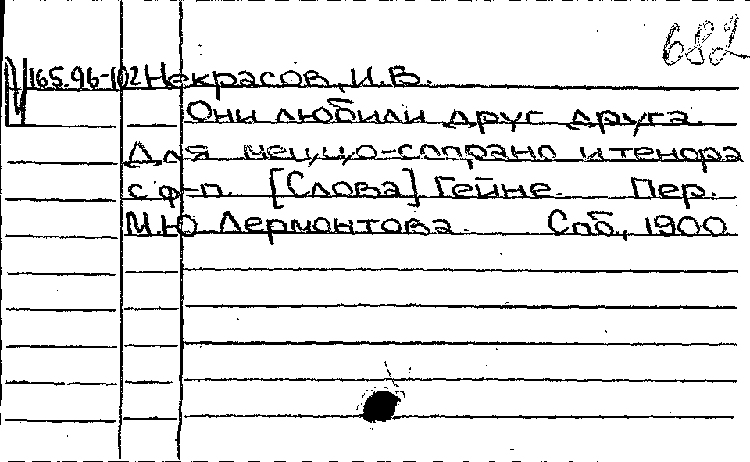 682
N 165.96-102 Некрасов, И.В.
Они любили друг друга.
Для меццо-сопрано и тенора
с ф-п. [Слова] Гейне. Пер.
М.Ю Лермонтова. Спб, 1900